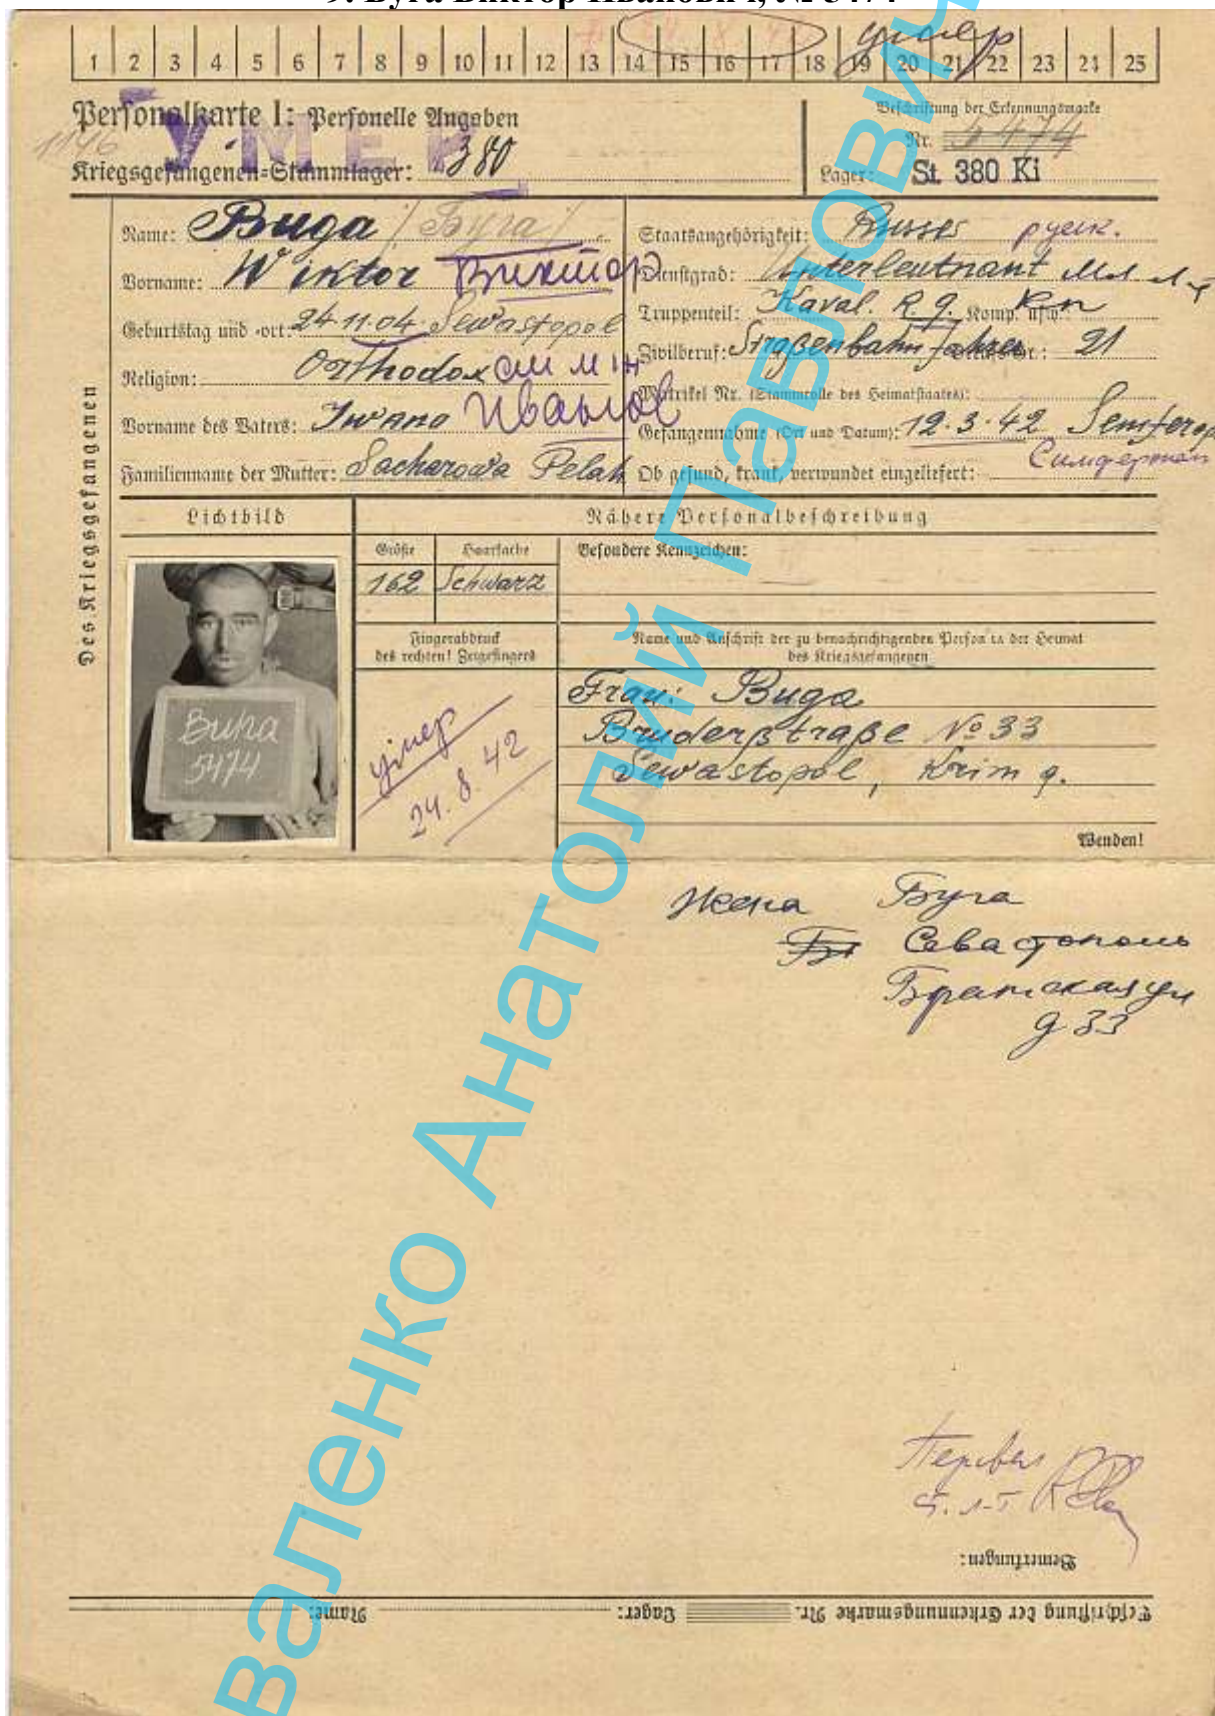 9. Буга Виктор Иванович, № 5474
1 2 3 4 5 6 7 8 9 10 11 12 13 14 15 16 17 18 19 20 21 22 23 24 25
умер
Personalkarte I: Personelle Angaben
Kriegsgefangenen-Stammlager: 380
УМЕР
Beschriftung der Erkennungsmarke
Nr. 5474
Lager: St. 380 Ki
Des Kriegsgefangenen
Name: Buga /Буга/
Vorname: Wiktor Виктор
Geburtstag und -ort: 24.11.04. Sewastopol
Religion: Orthodox
Vorname des Vaters: Iwano Иванов
Familienname der Mutter: Sacharowa Pelah
Staatsangehörigkeit: Russe русск.
Dienstgrad: Unterleutnant мл л-т
Truppenteil: Kaval. R. 9. Komp. usw.
Zivilberuf: Straßenbahnfahrer 21
Matrikel Nr. (Stammrolle des Heimatstaates):
Gefangennahme (Ort und Datum): 12.3.42 Semferop
Симферопол
Ob gesund, krank, verwundet eingeliefert:
Lichtbild
Nähere Personalbeschreibung
Größe Haarfarbe Besondere Kennzeichen:
162 Schwarz
Fingerabdruck
des rechten! Zeigefingers
Name und Anschrift der zu benachrichtigenden Person in der Heimat
des Kriegsgefangenen
Frau: Buga
Bruderstraße № 33
Sewastopol, Krim g.
Buga
5474
умер
24.8.42
Wenden!
Жена Буга
Севастополь
Братская ул
д 33
ст. л-т
Bemerkungen:
Beschriftung der Erkennungsmarke Nr. Lager: Name:
валенко Анатолий Павлович